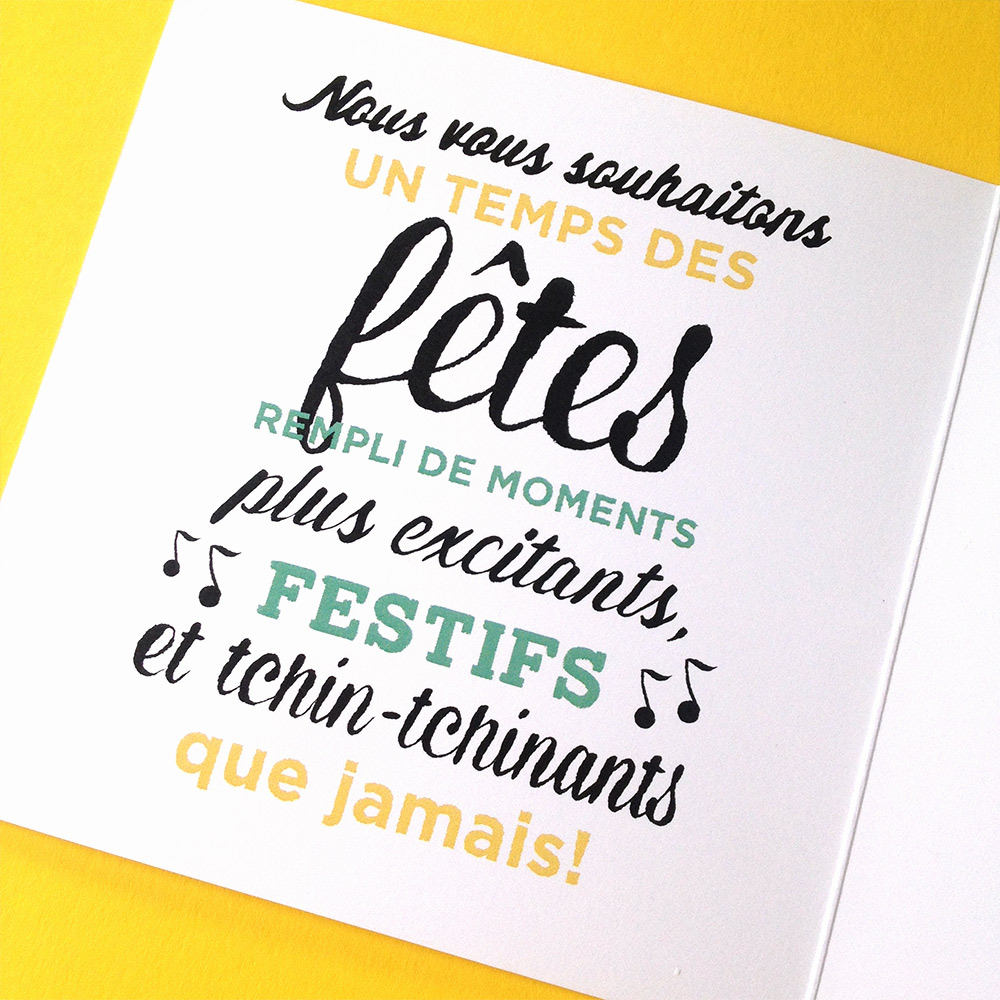 Nous vous souhaitons
UN TEMPS DES
fêtes
REMPLI DE MOMENTS
plus excitants,
FESTIFS
et tchin-tchinants
que jamais!